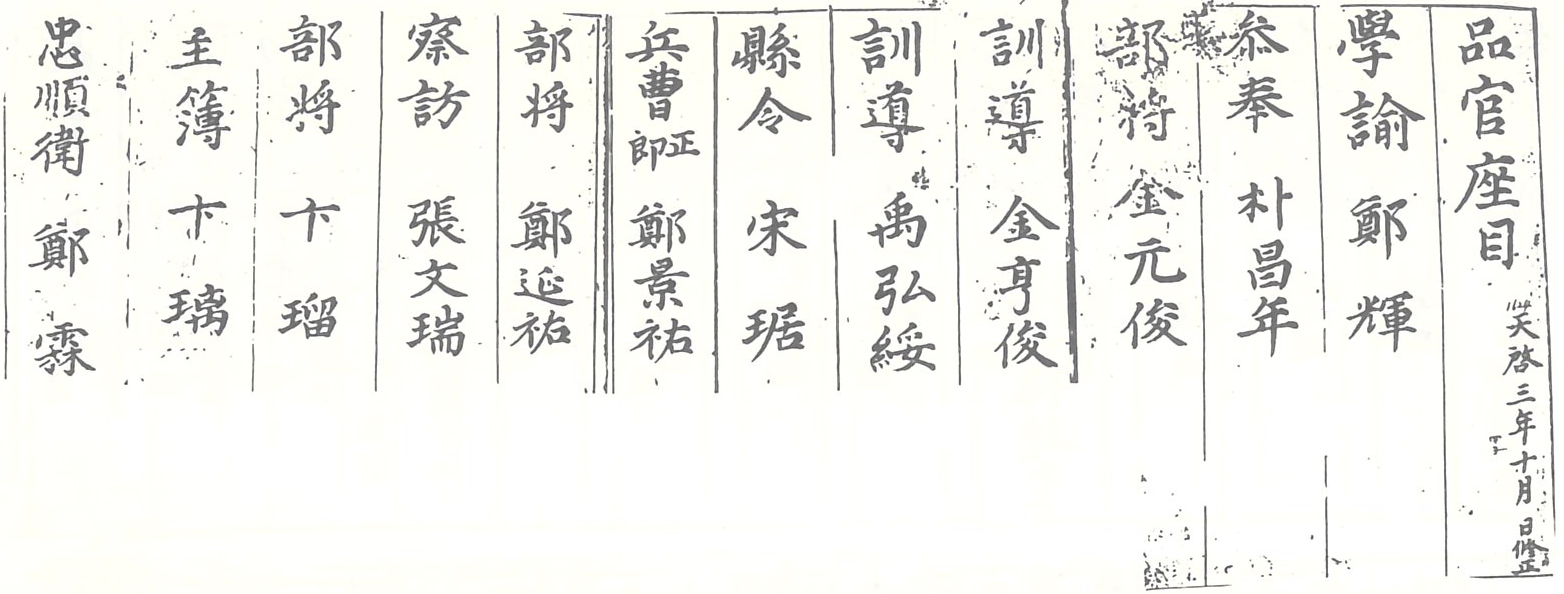 品官座目 天啓三年十月 日修正
學諭 鄭輝
叅奉 朴昌年
部将 金元俊
訓導 金亨俊
訓導 禹弘綏
縣令 宋琚
兵曹正郎 鄭景祐
部将 鄭延祐
察訪 張文瑞
部将 卞瑠
主簿 卞瑀
忠順衛 鄭霖